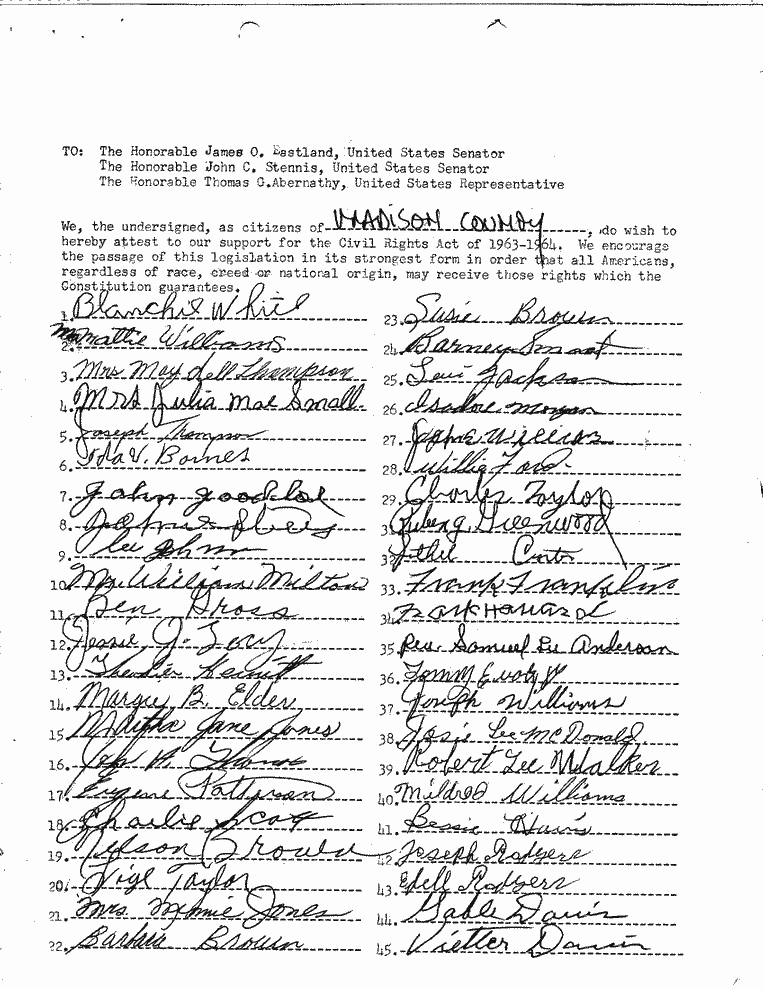 TO: The Honorable James O. Eastland, United States Senator
The Honorable John C. Stennis, United States Senator
The Honorable Thomas G.Abernathy, United States Representative
We, the undersigned, as citizens of MADISON COUNDY, do wish to
hereby attest to our support for the Civil Rights Act of 1963-1964. We encourage
the passage of this legislation in its strongest form in order that all Americans,
regardless of race, creed or national origin, may receive those rights which the
Constitution guarantees.
1. Blanchie White
2. Mattie Williams
3. Mrs May dell Thompson
4. Mrs Julia Mae Small
5. Joseph Thompson
6. Ida V. Barnes
7. John goodloe
8.
9. Lee John
10. Mr. William Milton
11. Ben Gross
12. Jessie J.
13.
14. Margie B. Elder
15. Jane Jones
16. H. Thomas
17. Eugene Patterson
18. Charlie
19. Nelson Brown
20. Taylor
21. Mrs Jones
22. Barbara Brown
23. Susie Brown
24. Barney Smart
25. Levi Jackson
26. Isadore Morgan
27. Williams
28. Willie Ford
29. Charles Taylor
Greenwood
Carter
33. Frank Franklin
34.
35. Rev. Samuel Lee Anderson
36. Tommy
37. Joseph Williams
38. Josie Lee McDonald
39. Robert Lee Walker
40. Mildred Williams
41. Bessie Davis
42. Joseph Rodgers
43. Edell Rodgers
44. Gable Davis
45. Vietter Davis